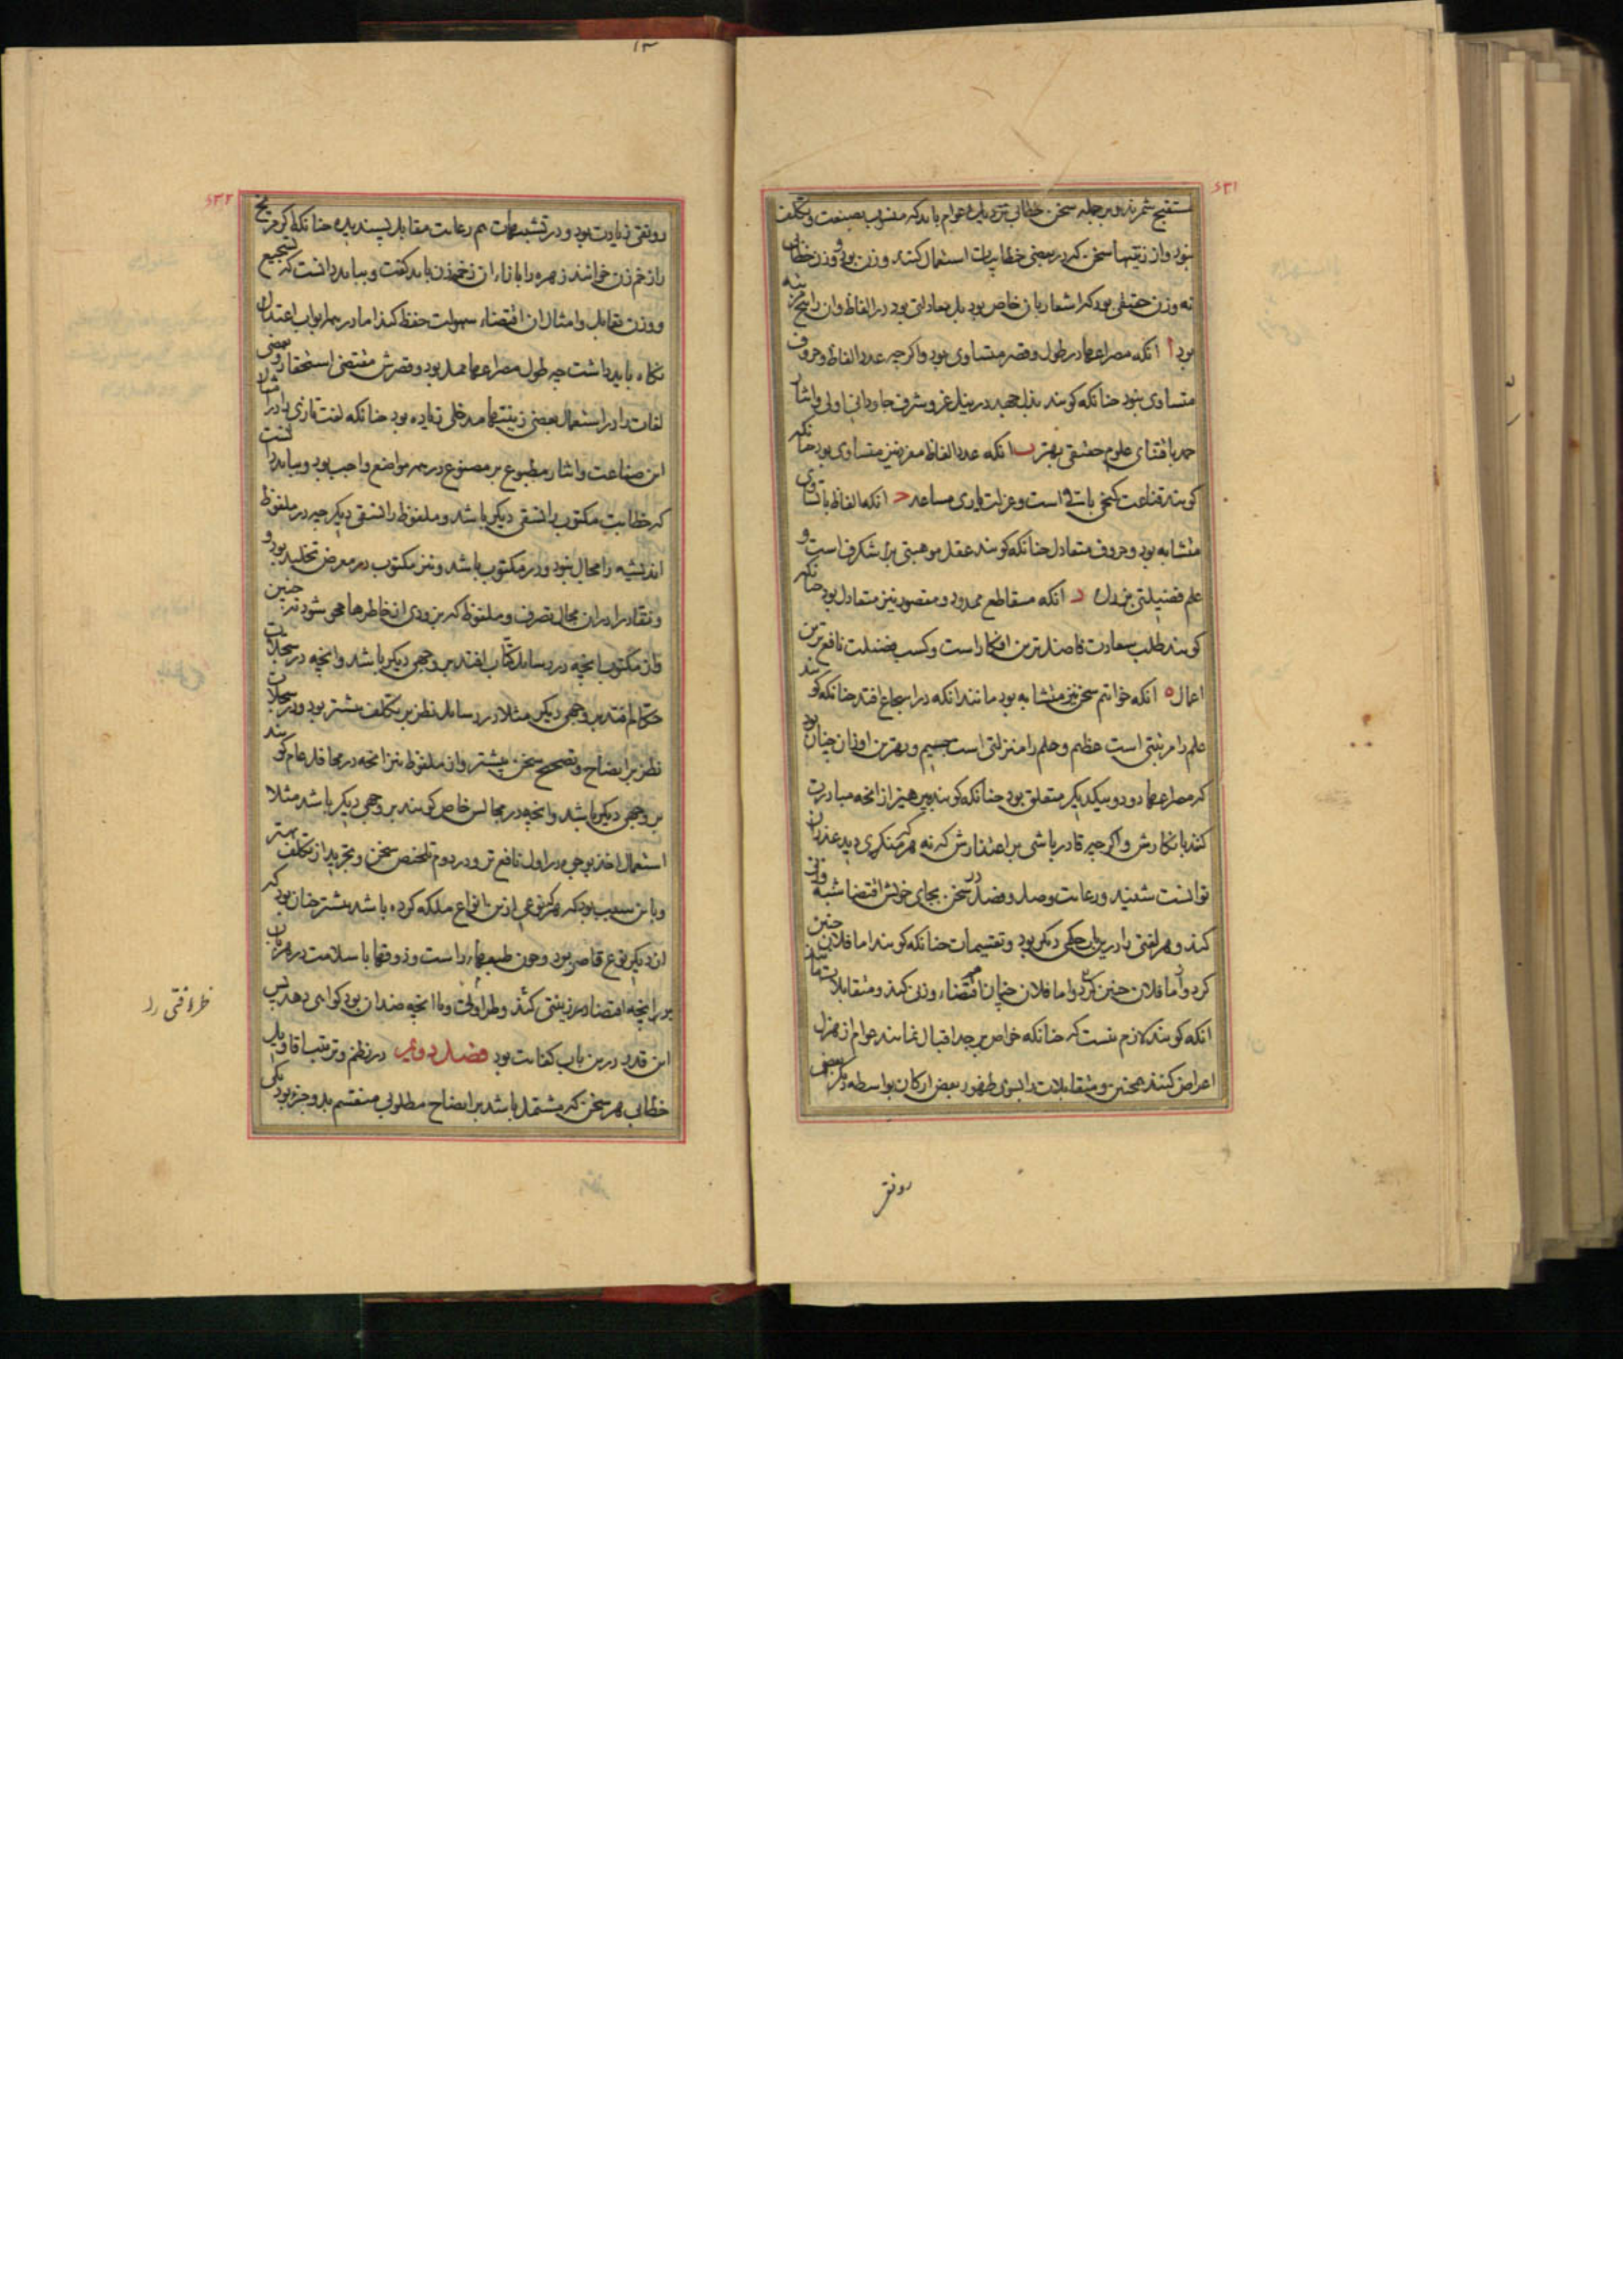 ۶۳۱
مستقبح شمرند و بر جمله سخن خطابی نزدیک عوام باید که منسوب بصنعت و تکلف
نبود و از زینتها سخن که در بعضی خطابیات استعمال کنند وزن بود و وزن خطابی
نه وزن حقیقی بود که اشعار بآن خاص بود بل معادلتی بود در الفاظ و آن را پنج مرتبه
بود ا آنکه مصراعها در طول و قصر متساوی بود و اگر چه عدد الفاظ و حروف
متساوی نبود جنانکه کویند بذل جهد در نیل عز و شرف جاودانی اولی و ایثار
جهد باقتنای علوم حقیقی بهتر ب آنکه عدد الفاظ مفرد نیز متساوی بود جنانکه
کویند قناعت کنجی باقی است و عزلت یاری مساعد ج آنکه الفاظ با تساوی
متشابه بود و حروف متعادل جنانکه کویند عقل موهبتی بس شکرف است و
علم فضیلتی بس بزرک د آنکه مقاطع ممدود و مقصور نیز متعادل بود جنانکه
کویند طلب سعادت فاضلترین افکار است و کسب فضیلت نافع ترین
اعمال ه آنکه خواتم سخن نیز متشابه بود مانند آنکه در اسجاع افتد جنانکه کویند
علم را مرتبتی است عظیم و حلم را منزلتی است جسیم و بهترین اوزان جنان بود
که مصراعها دو دو بیکدیکر متعلق بود جنانکه کویند بپرهیز از آنچه مبادرت
کنند بانکارش و اکر جه قادر باشی بر اعتذارش که نه هر که منکری دید عذر آن
توانست شنید و رعایت وصل و فصل در سخن بجای خویش اقتضا شبه وزنی
کند و هر لغتی را درین باب حکمی دیکر بود و تقسیمات جنانکه کویند اما فلان جنین
کرد و اما فلان جنین کرد و اما فلان جنان هم اقتضاء وزن کند و متقابلات مانند
آنکه کویند لازم نیست که جنانکه خواص بر جد اقبال نمایند عوام از هزل
اعراض کنند همچنین و متقابلات را بسوی ظهور بعض ارکان بواسطه دیکر بعض
رونقی
۶۳۲
رونقی زیادت بود و در تشبیهات هم رعایت مقابل پسندیده جنانکه اکر مریخ
را زخم زن خوانند زهره را بازاء آن زخمه زن باید کفت و بباید دانست که تسجیع
و وزن تقابل و امثال آن اقتضاء سهولت حفظ کند اما در همه ابواب اعتدال
نکاه باید داشت جه طول مصراعها ممل بود و قصرش مقتضی استحقار و بعضی
لغات را در استعمال بعضی زینتها مدخلی زیاده بود جنانکه لغت تازی را در
این صناعت و ایثار مطبوع بر مصنوع در همه مواضع واجب بود و بباید دانست
که خطابت مکتوب را نسقی دیکر باشد و ملفوظ را نسقی دیکر جه در ملفوظ
اندیشه را مجال نبود و در مکتوب باشد و نیز مکتوب در معرض تخلید بود و
و نقاد را در آن مجال تصرف و ملفوظ که بزودی از خاطرها محو شود نه جنین
و از مکتوب آنچه در رسایل کتاب افتد بر وجهی دیکر باشد و آنچه در سجلات
حکام افتد بر وجهی دیکر مثلا در رسایل نظر بر تکلف بیشتر بود و در سجلات
نظر بر ایضاح و تصحیح سخن بیشتر و از ملفوظ نیز آنچه در محافل عام کویند
بر وجهی دیکر باشد و آنچه در مجالس خاص کویند بر وجهی دیکر باشد مثلا
استعمال اخذ بوجوه در اول نافع تر و در دوم تلخیص سخن و تجرید از تکلف بهتر
و باین سبب بود که هر که نوعی ازین انواع ملکه کرده باشد بیشتر جنان بود که
از دیکر نوع قاصر بود و جون طبیعتها راست و ذوقها با سلامت در هر زبان
بر آنچه اقتضاء زینتی کند و طراوتی و با آنچه ضد آن بود کواهی دهد پس
این قدر درین باب کفایت بود فصل دوم در نظم و ترتیب اقاویل
خطابی هر سخن که مشتمل باشد بر ایضاح مطلوبی منقسم بدو جزو بود یکی